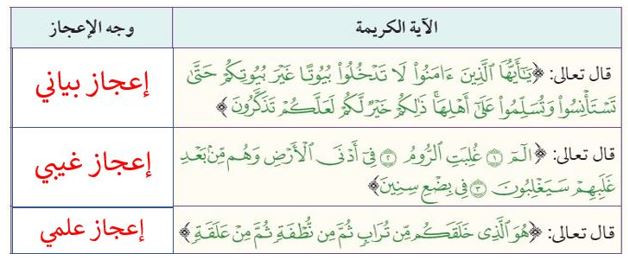 الآية الكريمة
وجه الإعجاز
قال تعالى: ﴿يَٰٓأَيُّهَا ٱلَّذِينَ ءَامَنُواْ لَا تَدۡخُلُواْ بُيُوتًا غَيۡرَ بُيُوتِكُمۡ حَتَّىٰ
تَسۡتَأۡنِسُواْ وَتُسَلِّمُواْ عَلَىٰٓ أَهۡلِهَاۚ ذَٰلِكُمۡ خَيۡرٞ لَّكُمۡ لَعَلَّكُمۡ تَذَكَّرُونَ﴾
إعجاز بياني
قال تعالى: ﴿الٓمٓ ١ غُلِبَتِ ٱلرُّومُ ٢ فِيٓ أَدۡنَى ٱلۡأَرۡضِ وَهُم مِّنۢ بَعۡدِ
غَلَبِهِمۡ سَيَغۡلِبُونَ ٣ فِي بِضۡعِ سِنِينَ﴾
إعجاز غيبي
قال تعالى: ﴿هُوَ ٱلَّذِي خَلَقَكُم مِّن تُرَابٖ ثُمَّ مِن نُّطۡفَةٖ ثُمَّ مِنۡ عَلَقَةٖ﴾
إعجاز علمي